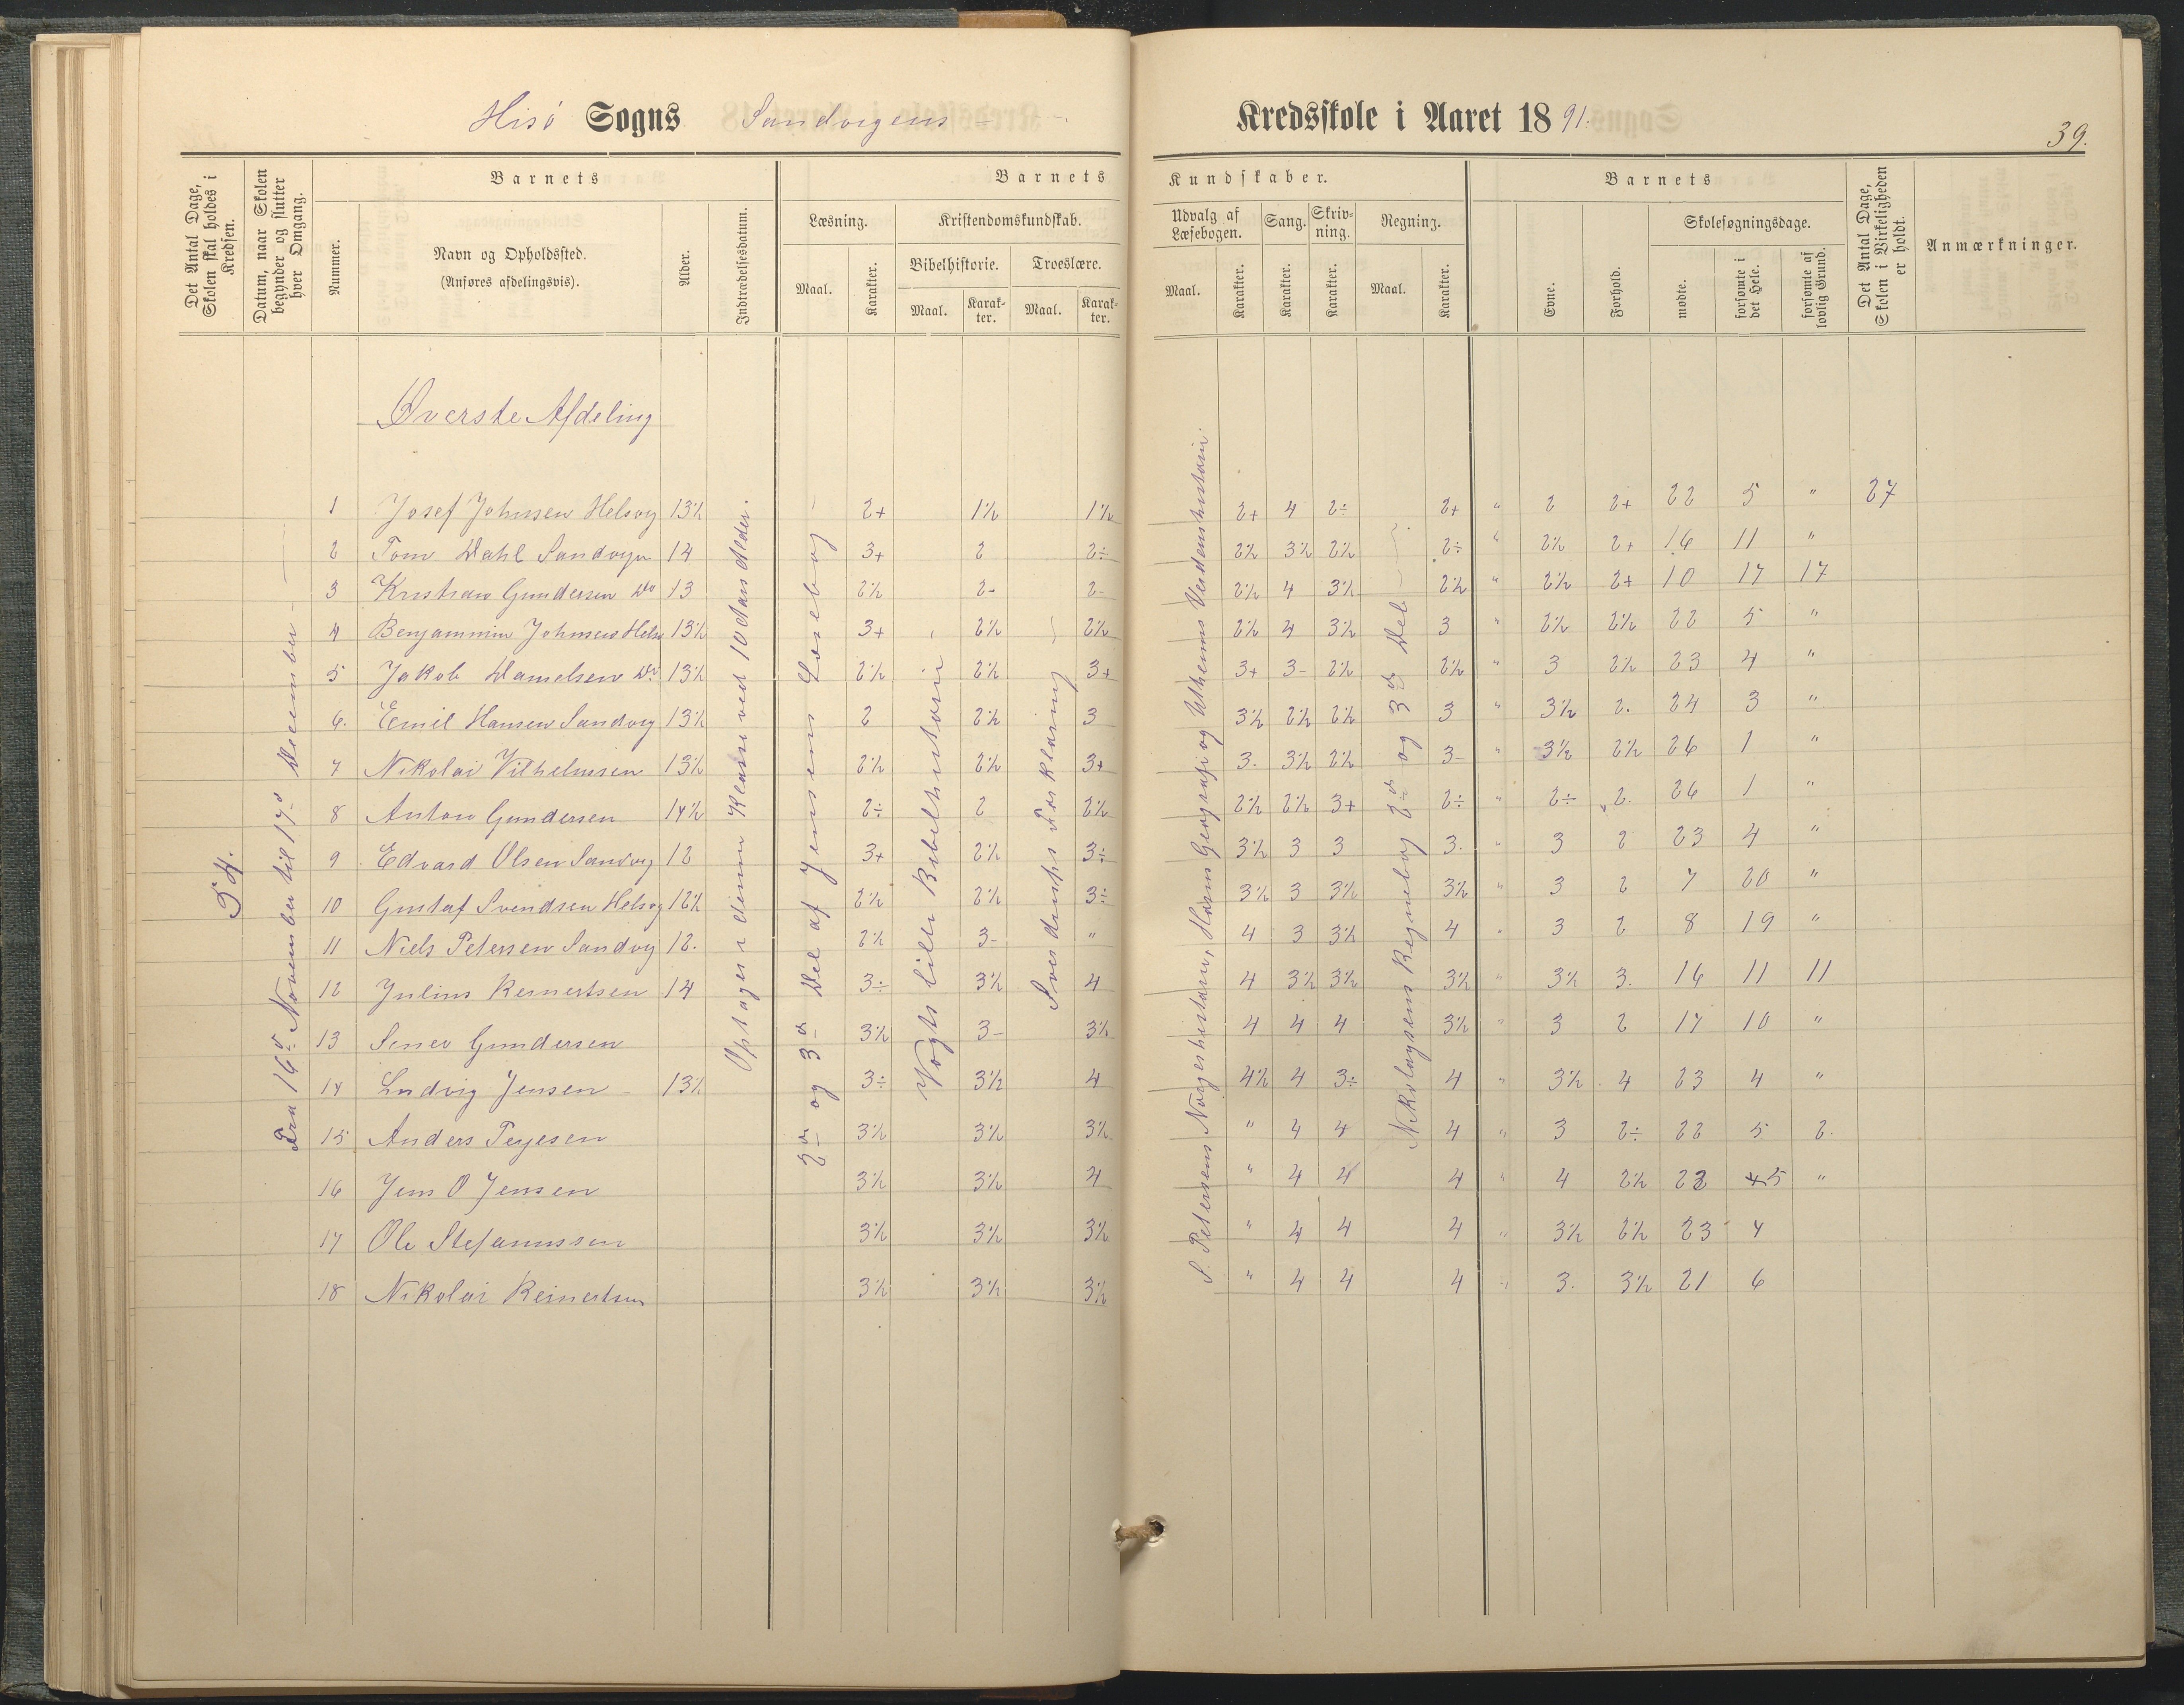 Hisø Sogns Sandvigens Kredsskole i Aaret 1891.
39.
Det Antal Dage, Skolen skal holdes i Kredsen.
Datum, naar Skolen begynder og slutter hver Omgang.
Barnets
Nummer.
Navn og Opholdssted.
(Anføres afdelingsvis).
Alder.
Indtrædelsesdatum.
Barnets Kundskaber.
Læsning.
Maal.
Karakter.
Kristendomskundskab.
Bibelhistorie.
Maal.
Karakter.
Troeslære.
Maal.
Karakter.
Udvalg af Læsebogen.
Maal.
Karakter.
Sang.
Karakter.
Skrivning.
Karakter.
Regning.
Maal.
Karakter.
Barnets
Evne.
Forhold.
Skolesøgningsdage.
mødte.
forsømte i det Hele.
forsømte af lovlig Grund.
Det Antal Dage, Skolen i Virkeligheden er holdt.
Anmærkninger.
Øverste Afdeling
54.
Fra 16de November til 17de December
Optages i denne Klasse ved 10 Aars Alder.
2den og 3de Del af Jensens Læsebog
Vogts lille Bibelhistorie
Sverdrups Forklaring
S. Petersens Norgeshistorie, Horns Geografi og Utheims Verdenshistorie.
Nikolaysens Regnebog 2den og 3de Del
1 Josef Johnsen Helsvig 13½ 2+ 1½ 1½ 2+ 4 2÷ 2+ " 2 2+ 22 5 " 27
2 Tom Dahl Sandvigen 14 3+ 2 2÷ 2½ 3½ 2½ 2÷ " 2½ 2+ 16 11 "
3 Kristian Gundersen Do 13 2½ 2- 2- 2½ 4 3½ 2½ " 2½ 2+ 10 17 17
4 Benjammin Johnsen Helsv 13½ 3+ 2½ 2½ 2½ 4 3½ 3 " 2½ 2½ 22 5 "
5 Jakob Danielsen Do 13½ 2½ 2½ 3+ 3+ 3- 2½ 2½ " 3 2½ 23 4 "
6. Emil Hansen Sandvig 13½ 2 2½ 3 3½ 2½ 2½ 3 " 3½ 2. 24 3 "
7 Nikolai Vilhelmsen 13½ 2½ 2½ 3+ 3. 3½ 2½ 3- " 3½ 2½ 26 1 "
8 Anton Gundersen 14½ 2÷ 2 2½ 2½ 2½ 3+ 2÷ " 2÷ 2. 26 1 "
9 Edvard Olsen Sandvig 12 3+ 2½ 3÷ 3½ 3 3 3. " 3 2 23 4 "
10 Gustaf Svendsen Helsvig 12½ 2½ 2½ 3÷ 3½ 3 3½ 3½ " 3 2 7 20 "
11 Niels Petersen Sandvig 12. 2½ 3- " 4 3 3½ 4 " 3 2 8 19 "
12 Julius Reinertsen 14 3÷ 3½ 4 4 3½ 3½ 3½ " 3½ 3. 16 11 11
13 Gundersen 3½ 3- 3½ 4 4 4 3½ " 3 2 17 10 "
14 Ludvig Jensen 13½ 3÷ 3½ 4 4½ 4 3÷ 4 " 3½ 4 23 4 "
15 Anders Terjesen 3½ 3½ 3½ " 4 4 4 " 3 2÷ 22 5 2.
16 Jens O Jensen 3½ 3½ 4 " 4 4 4 " 4 2½ 22 5 "
17 Ole Stefanussen 3½ 3½ 3½ " 4 4 4 " 3½ 2½ 23 4
18 Nikolai Reinertsen 3½ 3½ 3½ " 4 4 4 " 3. 3½ 21 6